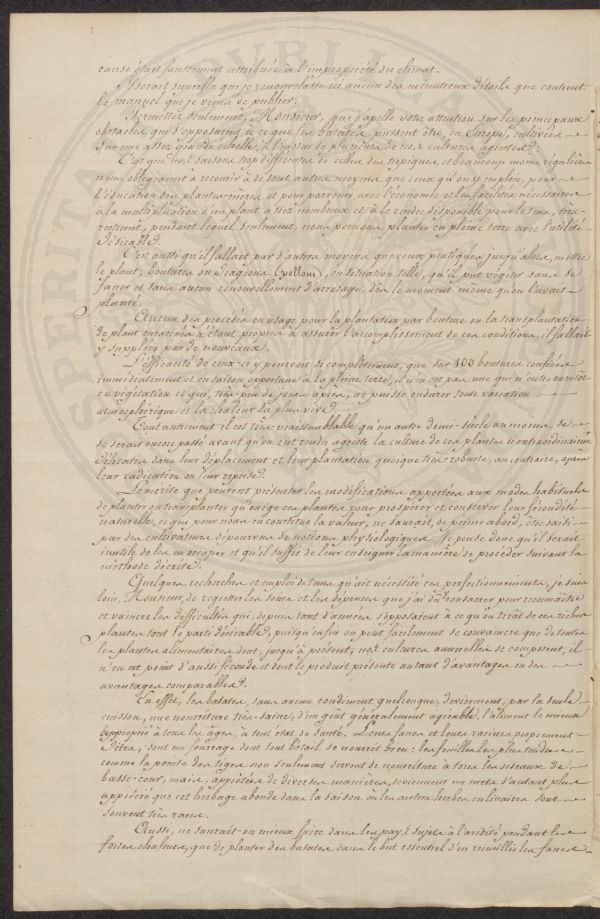 cause était faussement attribuée à l'impropriété du climat.
Il serait superflu que je renouvelasse ici aucun des minutieux détails que contient
le manuel que je viens de publier.
Permettez seulement, Monsieur, que j'apelle votre attention sur les principaux
obstacles qui s'opposaient à ce que les batates pussent être, en Europe, cultivées
sur une assez grande échelle, à l'instar de plusieurs de nos cultures agrestes.
C'est que nos saisons trop différentes de celles des tropiques et beaucoup moins régulières
nous obligeaient à recourir à de tout autres moyens que ceux qu'on y emploie, pour
l'éducation des plantes-mères et pour parvenir, avec l'économie et les facilités nécessaires
à la multiplication d'un plant assez nombreux et à le rendre disponible pour le tems, très
restreint, pendant lequel seulement, nous pouvons planter en pleine terre avec l'utilité
désirable.
C'est aussi qu'il fallait par d'autres moyens que ceux pratiqués jusqu'alors, mettre
le plant, boutures ou Srageons (polloni), en situation telle, qu'il put végéter sans se
faner et sans aucun renouvellement d'arrosage, dès le moment même qu'on l'avait
planté.
Aucun des procédés en usage pour la plantation par bouture ou la transplantation
de plant enraciné n'étant propres à assurer l'accomplissement de ces conditions, il fallait
y suppléer par de nouveaux.
L'éfficacité de ceux-ci y pourvoit si complètement, que sur 100 boutures confiées
immédiatement et en saison opportune à la pleine terre, il n'en est pas une qui n'entre aussitôt
en végétation et qui, très-peu de jours après, ne puisse endurer toute variation
atmosphérique et la chaleur la plus vive.
Tout autrement il est très vraisemblable qu'un autre demi-siècle au moins, se
se serait encore passé avant qu'on eut rendu agreste la culture de ces plantes si extraordinairem.t
délicates dans leur déplacement et leur plantation quoique très-robustes, au contraire, après
leur radication ou leur reprise.
Le mérite que peuvent présenter les modifications apportées aux modes habituels
de planter ou transplanter qu'exige ces plantes pour prospérer et conserver leur fécondité
naturelle, ce qui pour nous en constitue la valeur, ne saurait, de prime abord, être saisi
par des cultivateurs dépourvus de notions physiologiques. Je pense donc qu'il serait
inutile de les en occuper et qu'il suffit de leur enseigner la manière de procéder suivant la
méthode décrite.
Quelques recherches et emploi de tems qu'ait nécessité ces perfectionnements, je suis
loin, Monsieur, de regretter les soins et les dépenses que j'ai dû y consacrer pour reconnaitre
et vaincre les difficultés qui, depuis tant d'années s'opposaient à ce qu'on tirât de ces riches
plantes tout le parti désirable, puisqu'enfin on peut facilement se convaincre que de toutes
les plantes alimentaires dont, jusqu'à présent, nos cultures annuelles se composent, il
n'en est point d'aussi féconde et dont le produit présente autant d'avantages ou des
avantages comparables.
En effet, les batates, sans aucun condiment quelconque, deviennent, par la seule
cuisson, une nourriture très-saine, d'un goût généralement agréable, l'aliment le mieux
approprié à tous les âges, à tout état de santé. Leurs fanes et leurs racines proprement
dites, sont un fourrage dont tout bétail se nourrit bien: les feuilles les plus tendres
comme la pointe des tiges non seulement servent de nourriture à tous les oiseaux de
basse-cour, mais, apprêtées de diverses manières, deviennent un mets d'autant plus
apprécié que cet herbage abonde dans la saison où les autres herbes culinaires sont
souvent très rares.
Aussi, ne saurait-on mieux faire dans les pays sujets à l'aridité pendant les
fortes chaleurs, que de planter des batates dans le but essentiel d'en recueillir les fanes